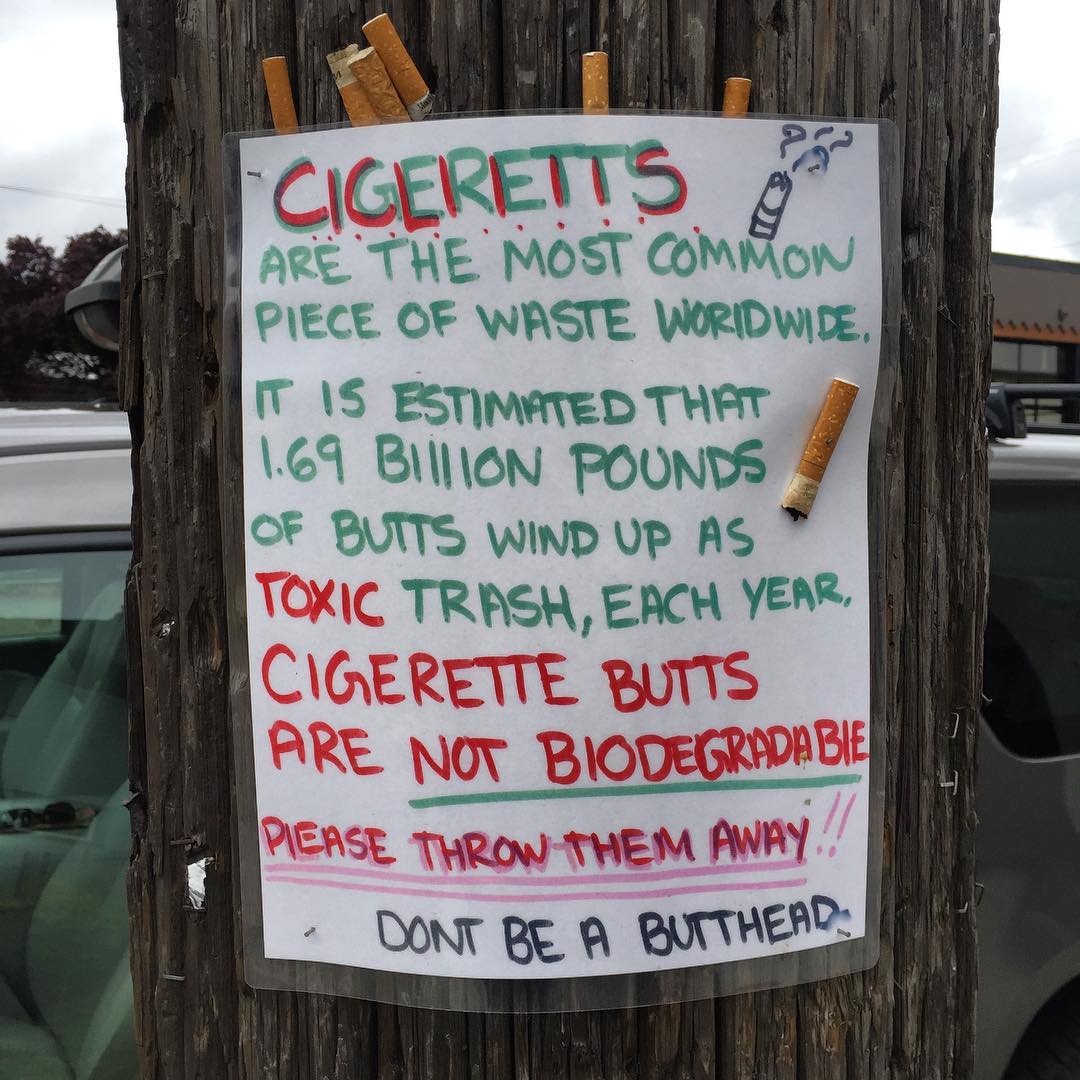 CIGERETTS
ARE THE MOST COMMON
PIECE OF WASTE WORlDWIDE.
IT IS ESTIMATED THAT
1.69 BIllION POUNDS
OF BUTTS WIND UP AS
TOXIC TRASH, EACH YEAR.
CIGERETTE BUTTS
ARE NOT BIODEGRADABlE
PlEASE THROW THEM AWAY!!
DONT BE A BUTTHEAD